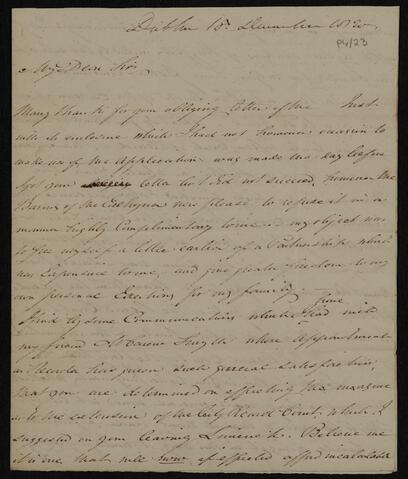 Dublin 15 December 1820
P4/23
My Dear Sir
Many thanks for your obliging letter of the Inst
with its enclosure which I had not however occasion to
make use of the application was made the day before
I got your letter but did not succeed, however the
Barons of the Exchequer were pleased to refuse it in a
manner highly Complimentary to me - my object was
to free myself a little earlier of a Partnership which
was expensive to me, and give greater freedom to my
own personal Exertions for my family.
I find by some Communication which I had with from
my friend Baron Smyth whose appointment
as Recorder has given such general satisfaction,
that you are determined on effecting the measure
as to the extension of the City Record Court, which I
suggested on your leaving Limerick. Believe me
it is one that will now if effected afford incalculable